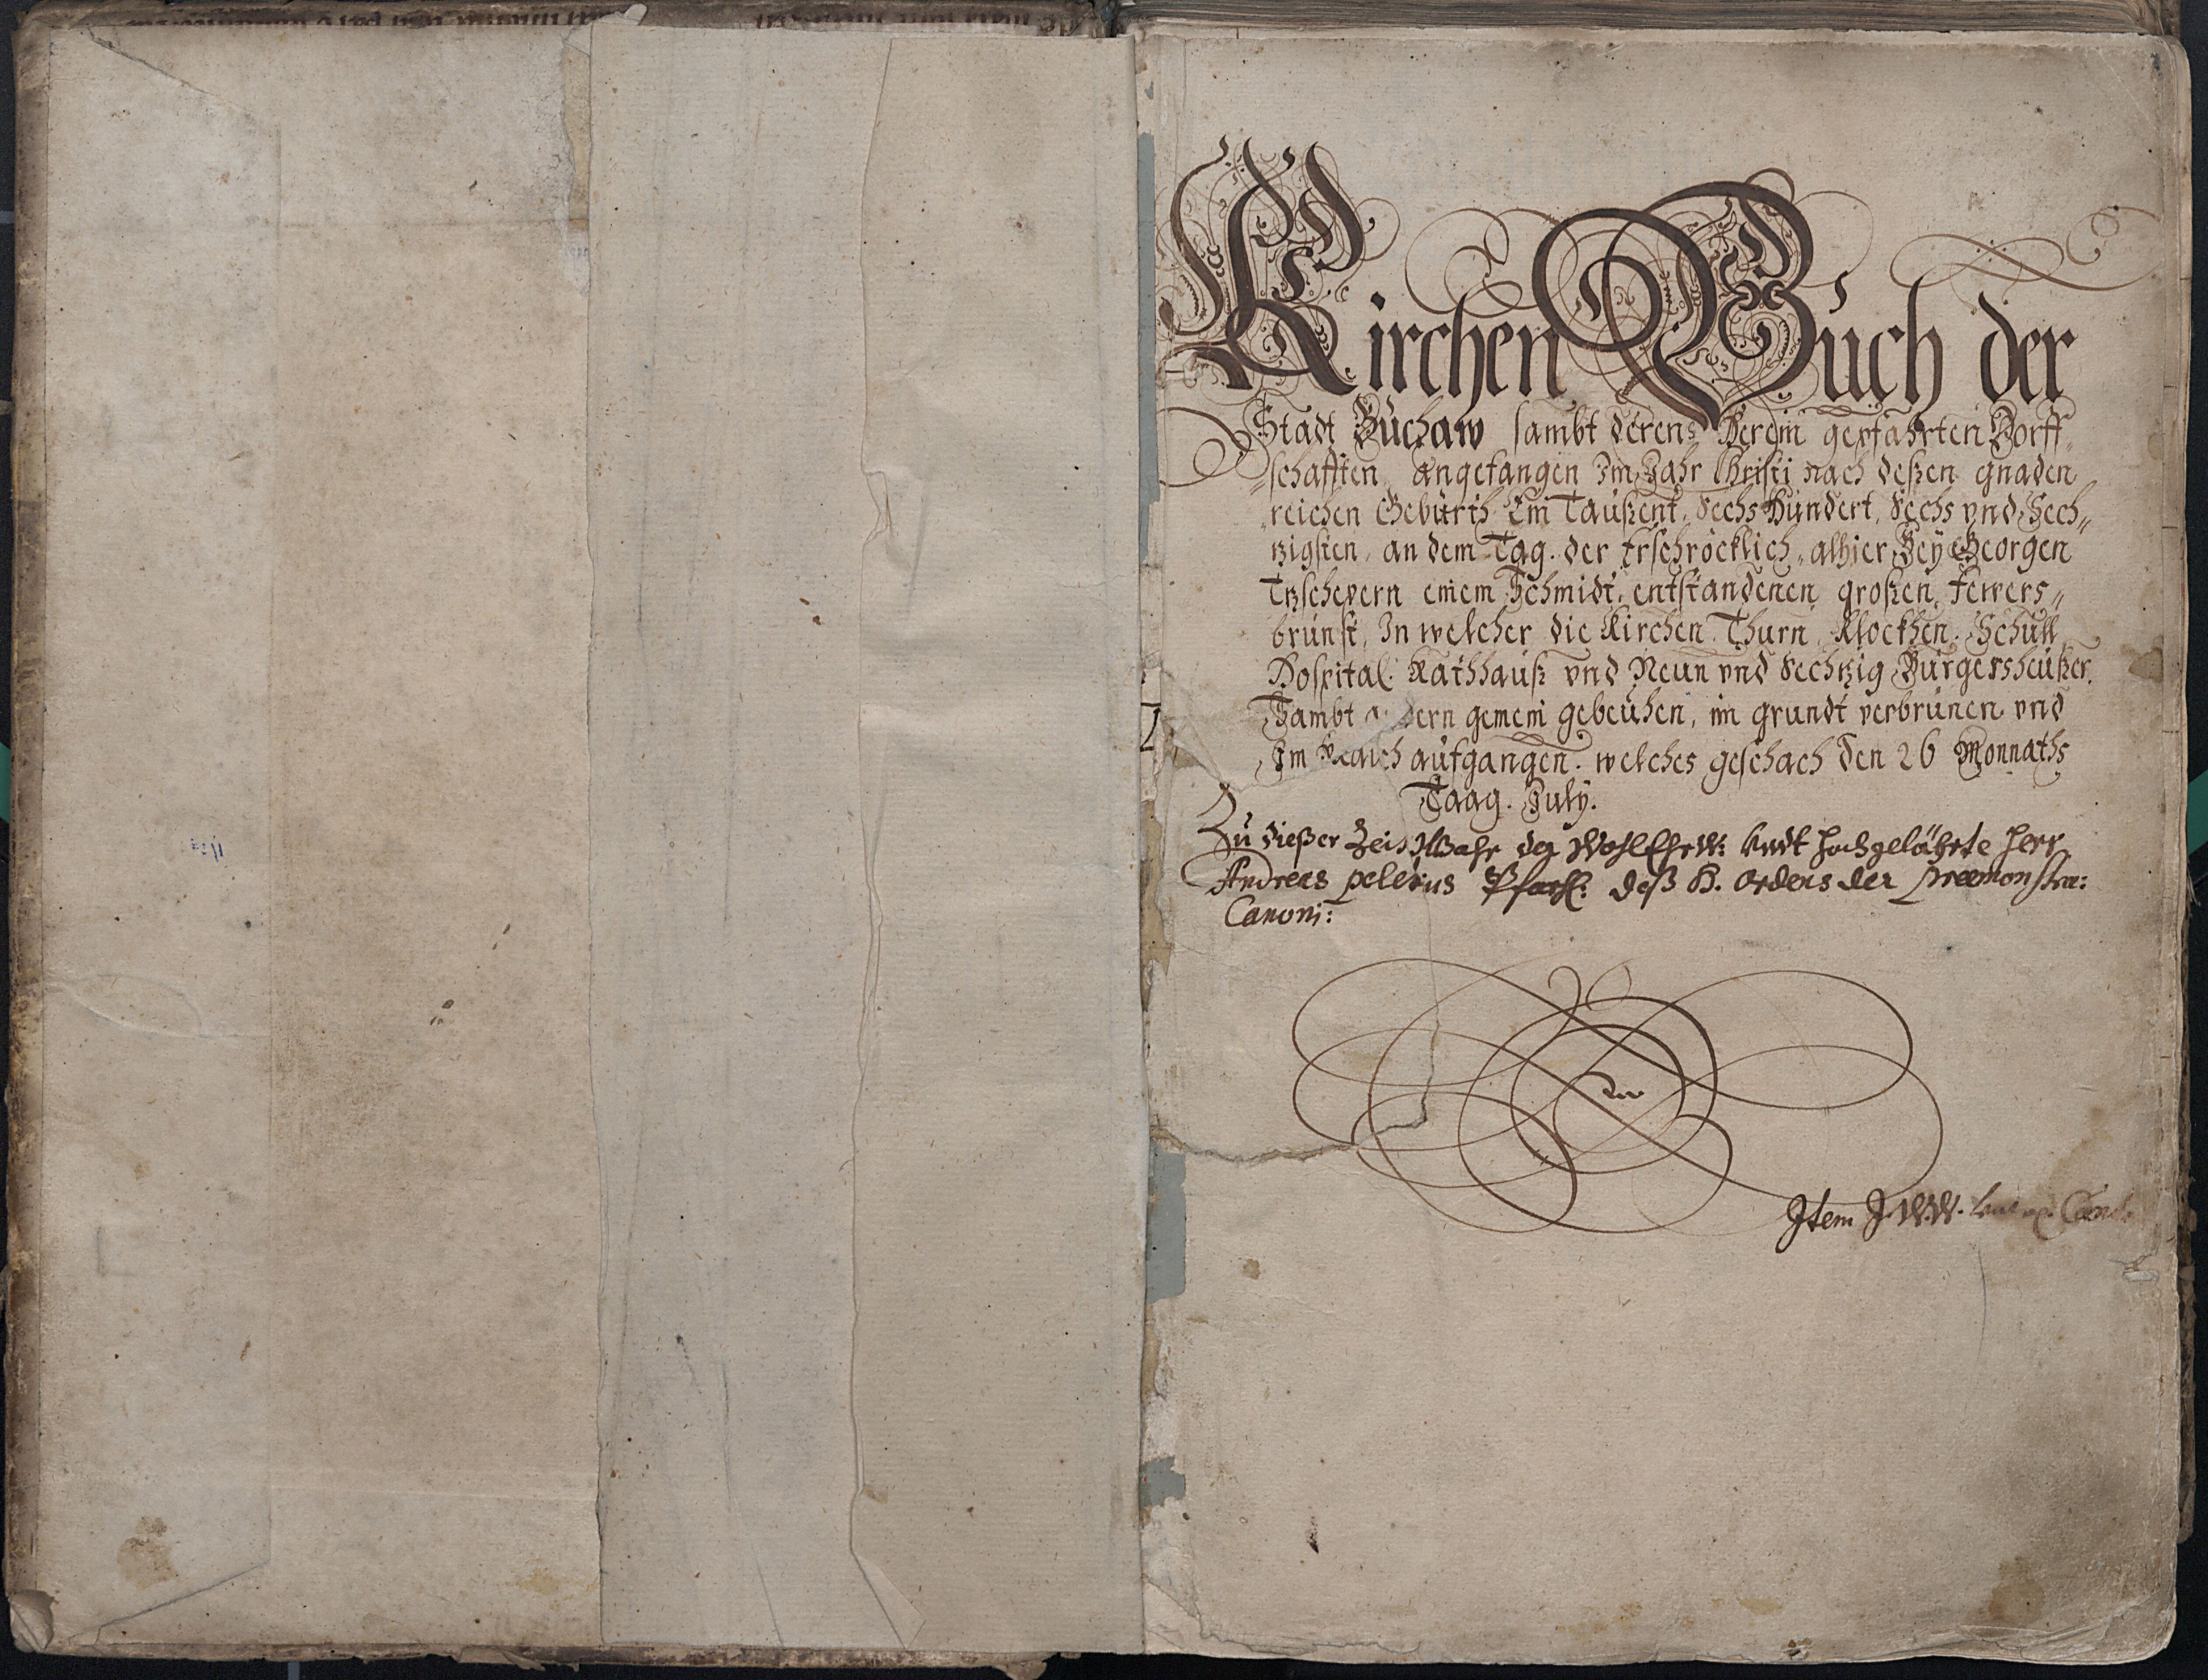 Kirchen Buch der
Stadt Buchaw sambt deren herein gepfahrten Dorff„
„schafften, Angefangen Im Jahr Christi nach deßen gnaden
„reichen Geburth Ein Taußent, Sechs Hundert, Sechs vnd Sech„
tzigsten, an dem Tag der Erschröcklich, alhier Bey Georgen
einem Schmidt, entstandenen großen, fewers„
brunst, In welcher die Kirchen, Thurn, Klockhen, Schull
Hospital, Rathhauß vnd Neun vnd Sechtzig Burgersheußer,
Sambt andern gemein gebeuhen, im grundt verbrunen vnd
Im Rauch aufgangen, welches geschach den 26 Monnaths
Taag. July.
Zu dießer Zeit Wahr der WohlEhrW: undt hochgelährte Herr
Andreas pelerius Pfarh: deß H. ordens der præmonstra:
Canoni:
Item J. W.W.